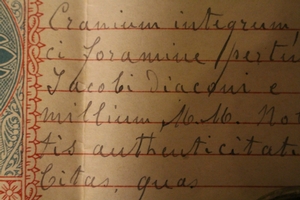 Cranium integrum,
ci foramine pertu
Jacobi diaconi e
millium, M. M. No
tis authenticitati
bitas, quas